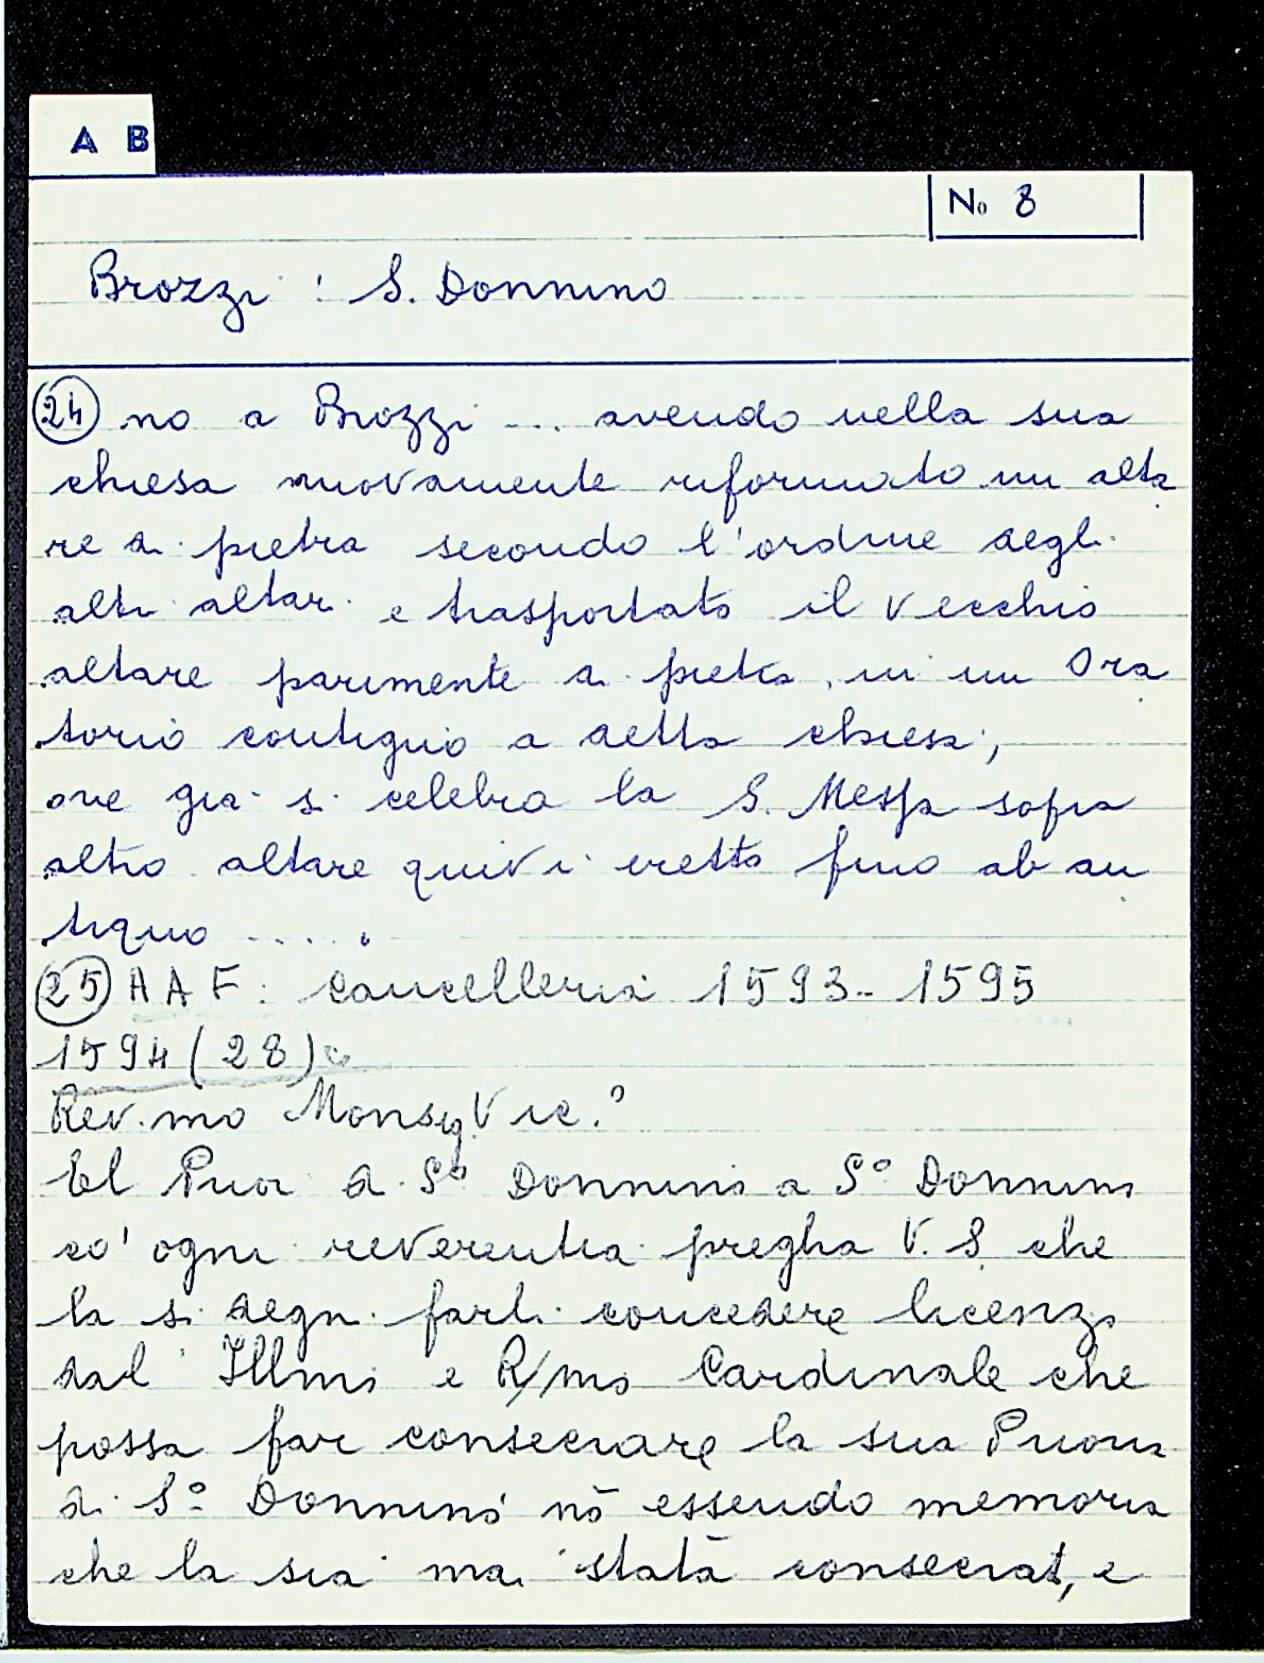 A B
No 8
Brozzi : S. Donnino
24 no a Brozzi ... avendo nella sua
chiesa nuovamente riformato un alta
re di pietra secondo l'ordine degli
altri altari e trasportato il vecchio
altare parimente di pietra in un Ora
torio contiguo a detta chiesa,
ove gia si celebra la S. Messa sopra
altro altare quivi eretto fino ab an
tiquo .....
25 AAF: Cancelleria 1593-1595
1594 (28)
Rev.mo Monsig. Vic.?
El Prior di S° Donnino a S° Donnino
co' ogni reverentia pregha V. S. che
la si degni farli concedere licenzi
dal Illmo e R/mo Cardinale che
possa far consecrare la sua Prioria
di S° Donnino nō essendo memoria
che la sia mai stata consecrat, e